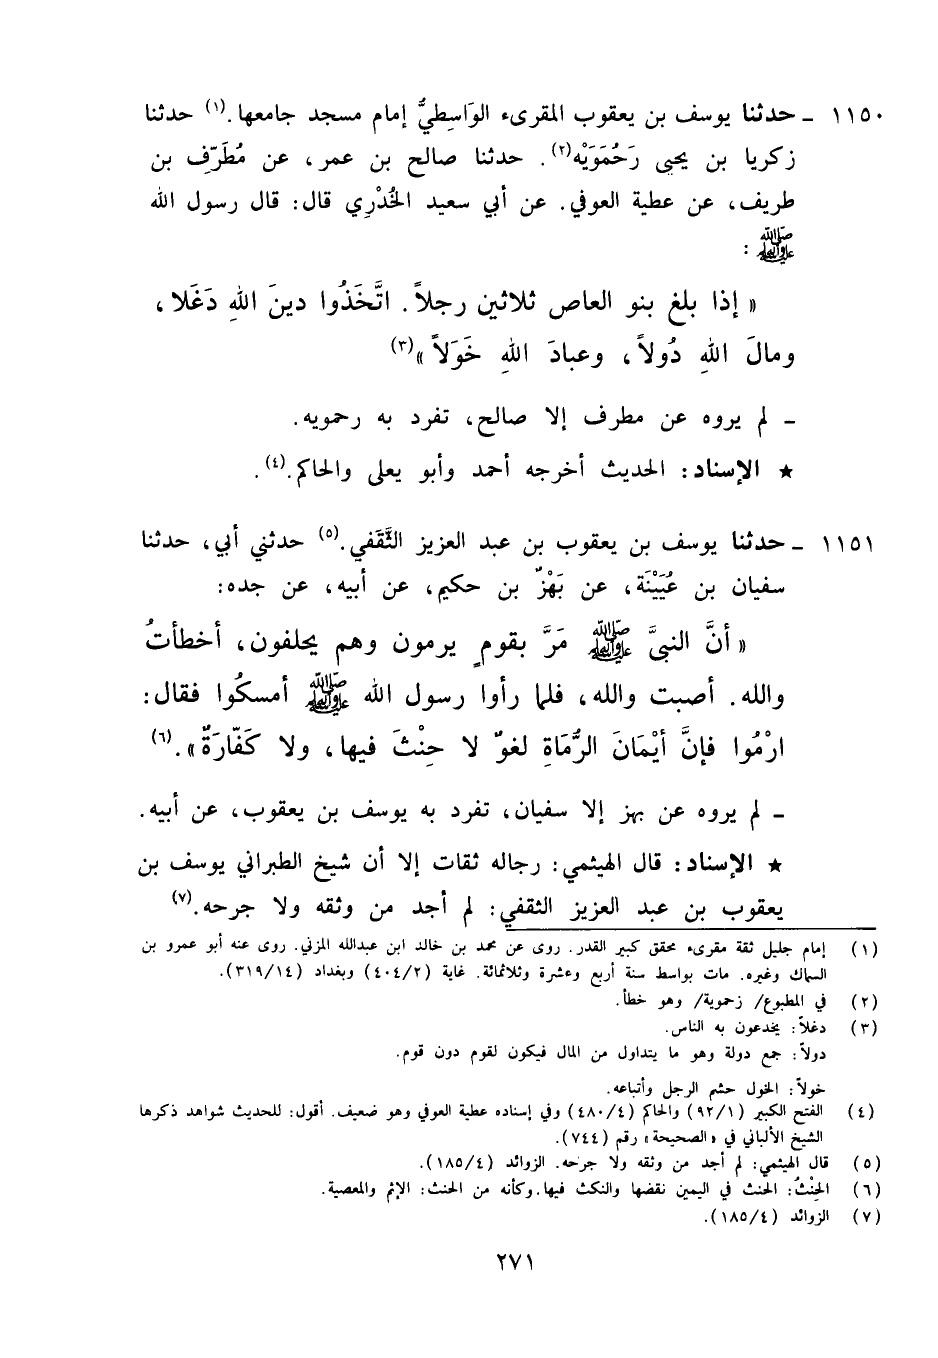 ١١٥٠ ـ حدثنا يوسف بن يعقوب المقرىء الوَاسِطيُّ إمام مسجد جامعها.(١) حدثنا
زكريا بن يحيى رَحْمَوَيْه(٢). حدثنا صالح بن عمر، عن مُطَرِّف بن
طريف، عن عطية العوفي. عن أبي سعيد الخُدْرِي قال: قال رسول الله
ﷺ :
« إذا بلغ بنو العاص ثلاثين رجلاً. اتَّخَذُوا دينَ اللهِ دَغَلا،
ومالَ اللهِ دُولاً، وعبادَ اللهِ خَوَلاً »(٣)
ـ لم يروه عن مطرف إلا صالح، تفرد به رحمويه.
★ الإسناد: الحديث أخرجه أحمد وأبو يعلى والحاكم.(٤).
١١٥١ ـ حدثنا يوسف بن يعقوب بن عبد العزيز الثَّقَفي.(٥) حدثني أبي، حدثنا
سفيان بن عُيَيْنَة، عن بَهْزٌ بن حكيم، عن أبيه، عن جده:
« أنَّ النبيَّ ﷺ مَرَّ بقومٍ يرمون وهم يحلفون، أخطأتُ
والله. أصبت والله، فلما رأوا رسول الله ﷺ أمسكُوا فقال:
ارْمُوا فإنَّ أيْمَانَ الرُّمَاةِ لغوٌ لا حِنْثَ فيها، ولا كَفّارَةٌ ».(٦)
ـ لم يروه عن بهز إلا سفيان، تفرد به يوسف بن يعقوب، عن أبيه.
★ الإسناد: قال الهيثمي: رجاله ثقات إلا أن شيخ الطبراني يوسف بن
يعقوب بن عبد العزيز الثقفي: لم أجد من وثقه ولا جرحه.(٧)
(١) إمام جليل ثقة مقرىء محقق كبير القدر. روى عن محمد بن خالد ابن عبدالله المزني. روى عنه أبو عمرو بن
السماك وغيره. مات بواسط سنة أربع وعشرة وثلاثمائة. غاية (٤٠٤/٢) وبغداد (٣١٩/١٤).
(٢) في المطبوع/ زحموية/ وهو خطأ.
(٣) دغلاً: يخدعون به الناس.
دولاً: جمع دولة وهو ما يتداول من المال فيكون لقوم دون قوم.
خولاً: الخول حشم الرجل وأتباعه.
(٤) الفتح الكبير (٩٢/١) والحاكم (٤٨٠/٤) وفي إسناده عطية العوفي وهو ضعيف. أقول: للحديث شواهد ذكرها
الشيخ الألباني في « الصحيحة » رقم (٧٤٤).
(٥) قال الهيثمي: لم أجد من وثقه ولا جرحه. الزوائد (١٨٥/٤).
(٦) الحِنْثُ: الحنث في اليمين نقضها والنكث فيها. وكأنه من الحنث: الإثم والمعصية.
(٧) الزوائد (١٨٥/٤).
٢٧١